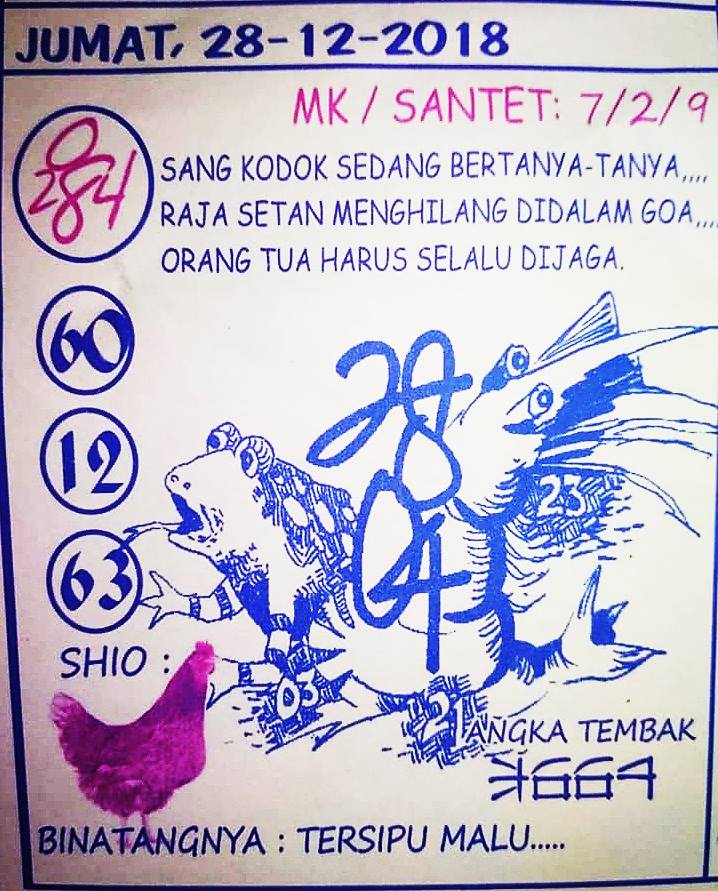 JUMAT, 28-12-2018
MK / SANTET: 7/2/9
0
284
SANG KODOK SEDANG BERTANYA-TANYA,,,,
RAJA SETAN MENGHILANG DIDALAM GOA,,,,
ORANG TUA HARUS SELALU DIJAGA.
60
28
12
23
04
63
SHIO :
03
21
ANGKA TEMBAK
664
BINATANGNYA : TERSIPU MALU.....